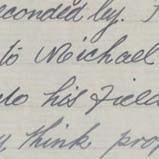 seconded by.
to Michael
to his Field
think pro